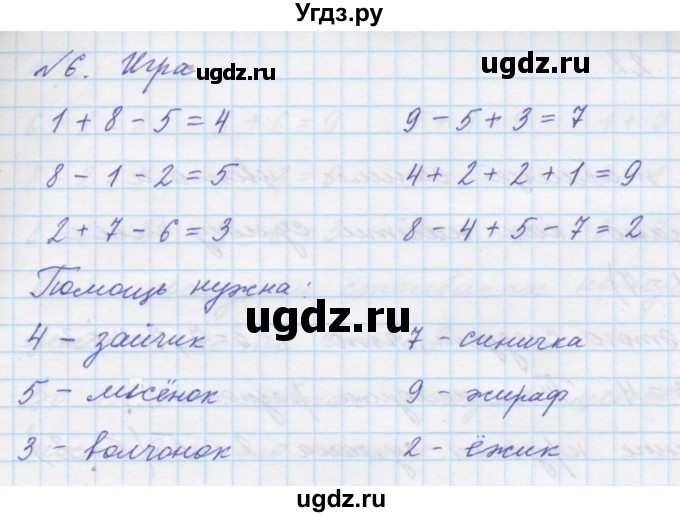 Угдз.ру
№6. Игра
ugdz.ru
ugdz.ru
1 + 8 - 5 = 4
9 - 5 + 3 = 7
8 - 1 - 2 = 5
4 + 2 + 2 + 1 = 9
ugdz.ru
ugdz.ru
2 + 7 - 6 = 3
8 - 4 + 5 - 7 = 2
Помощь нужна:
ugdz.ru
4 - зайчик
7 - синичка
5 - лисёнок
9 - жираф
ugdz.ru
ugdz.ru
3 - волчонок
2 - ёжик
ugdz.ru